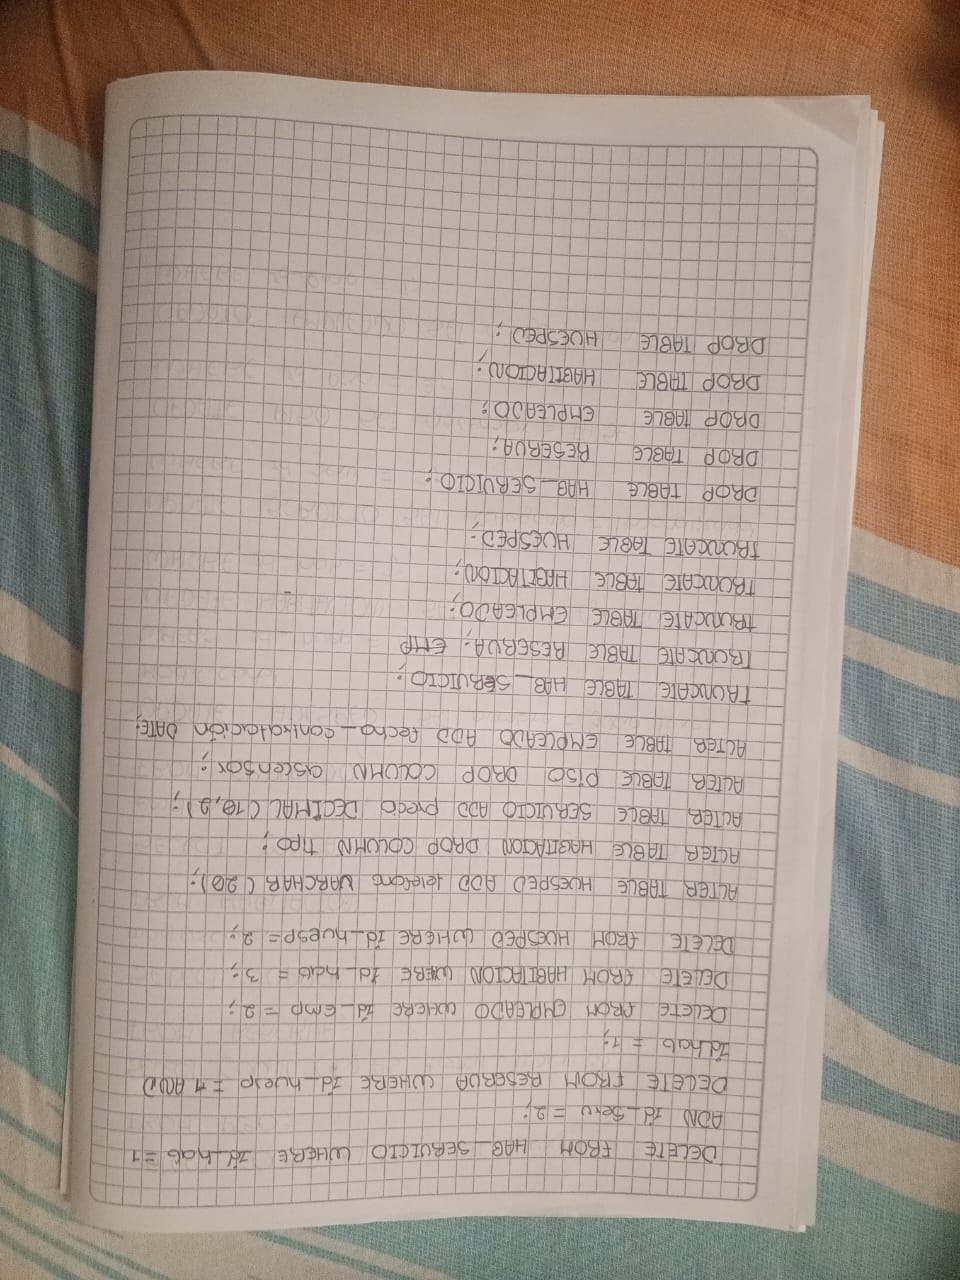 DELETE FROM HAB_SERVICIO WHERE id_hab = 1
ADN id_serv = 2;
DELETE FROM RESERVA WHERE id_huesp = 1 AND
id_hab = 1;
DELETE FROM EMPLEADO WHERE id_Emp = 2;
DELETE FROM HABITACION WHERE id_hab = 3;
DELETE FROM HUESPED WHERE id_huesp = 2;
ALTER TABLE HUESPED ADD telefono VARCHAR (20);
ALTER TABLE HABITACION DROP COLUMN tipo;
ALTER TABLE SERVICIO ADD precio DECIMAL (10,2);
ALTER TABLE PISO DROP COLUMN ascensor;
ALTER TABLE EMPLEADO ADD fecha_contratación DATE;
TRUNCATE TABLE HAB_SERVICIO;
TRUNCATE TABLE RESERVA; EMP
TRUNCATE TABLE EMPLEADO;
TRUNCATE TABLE HABITACION;
TRUNCATE TABLE HUESPED;
DROP TABLE HAB_SERVICIO;
DROP TABLE RESERVA;
DROP TABLE EMPLEADO;
DROP TABLE HABITACION;
DROP TABLE HUESPED;